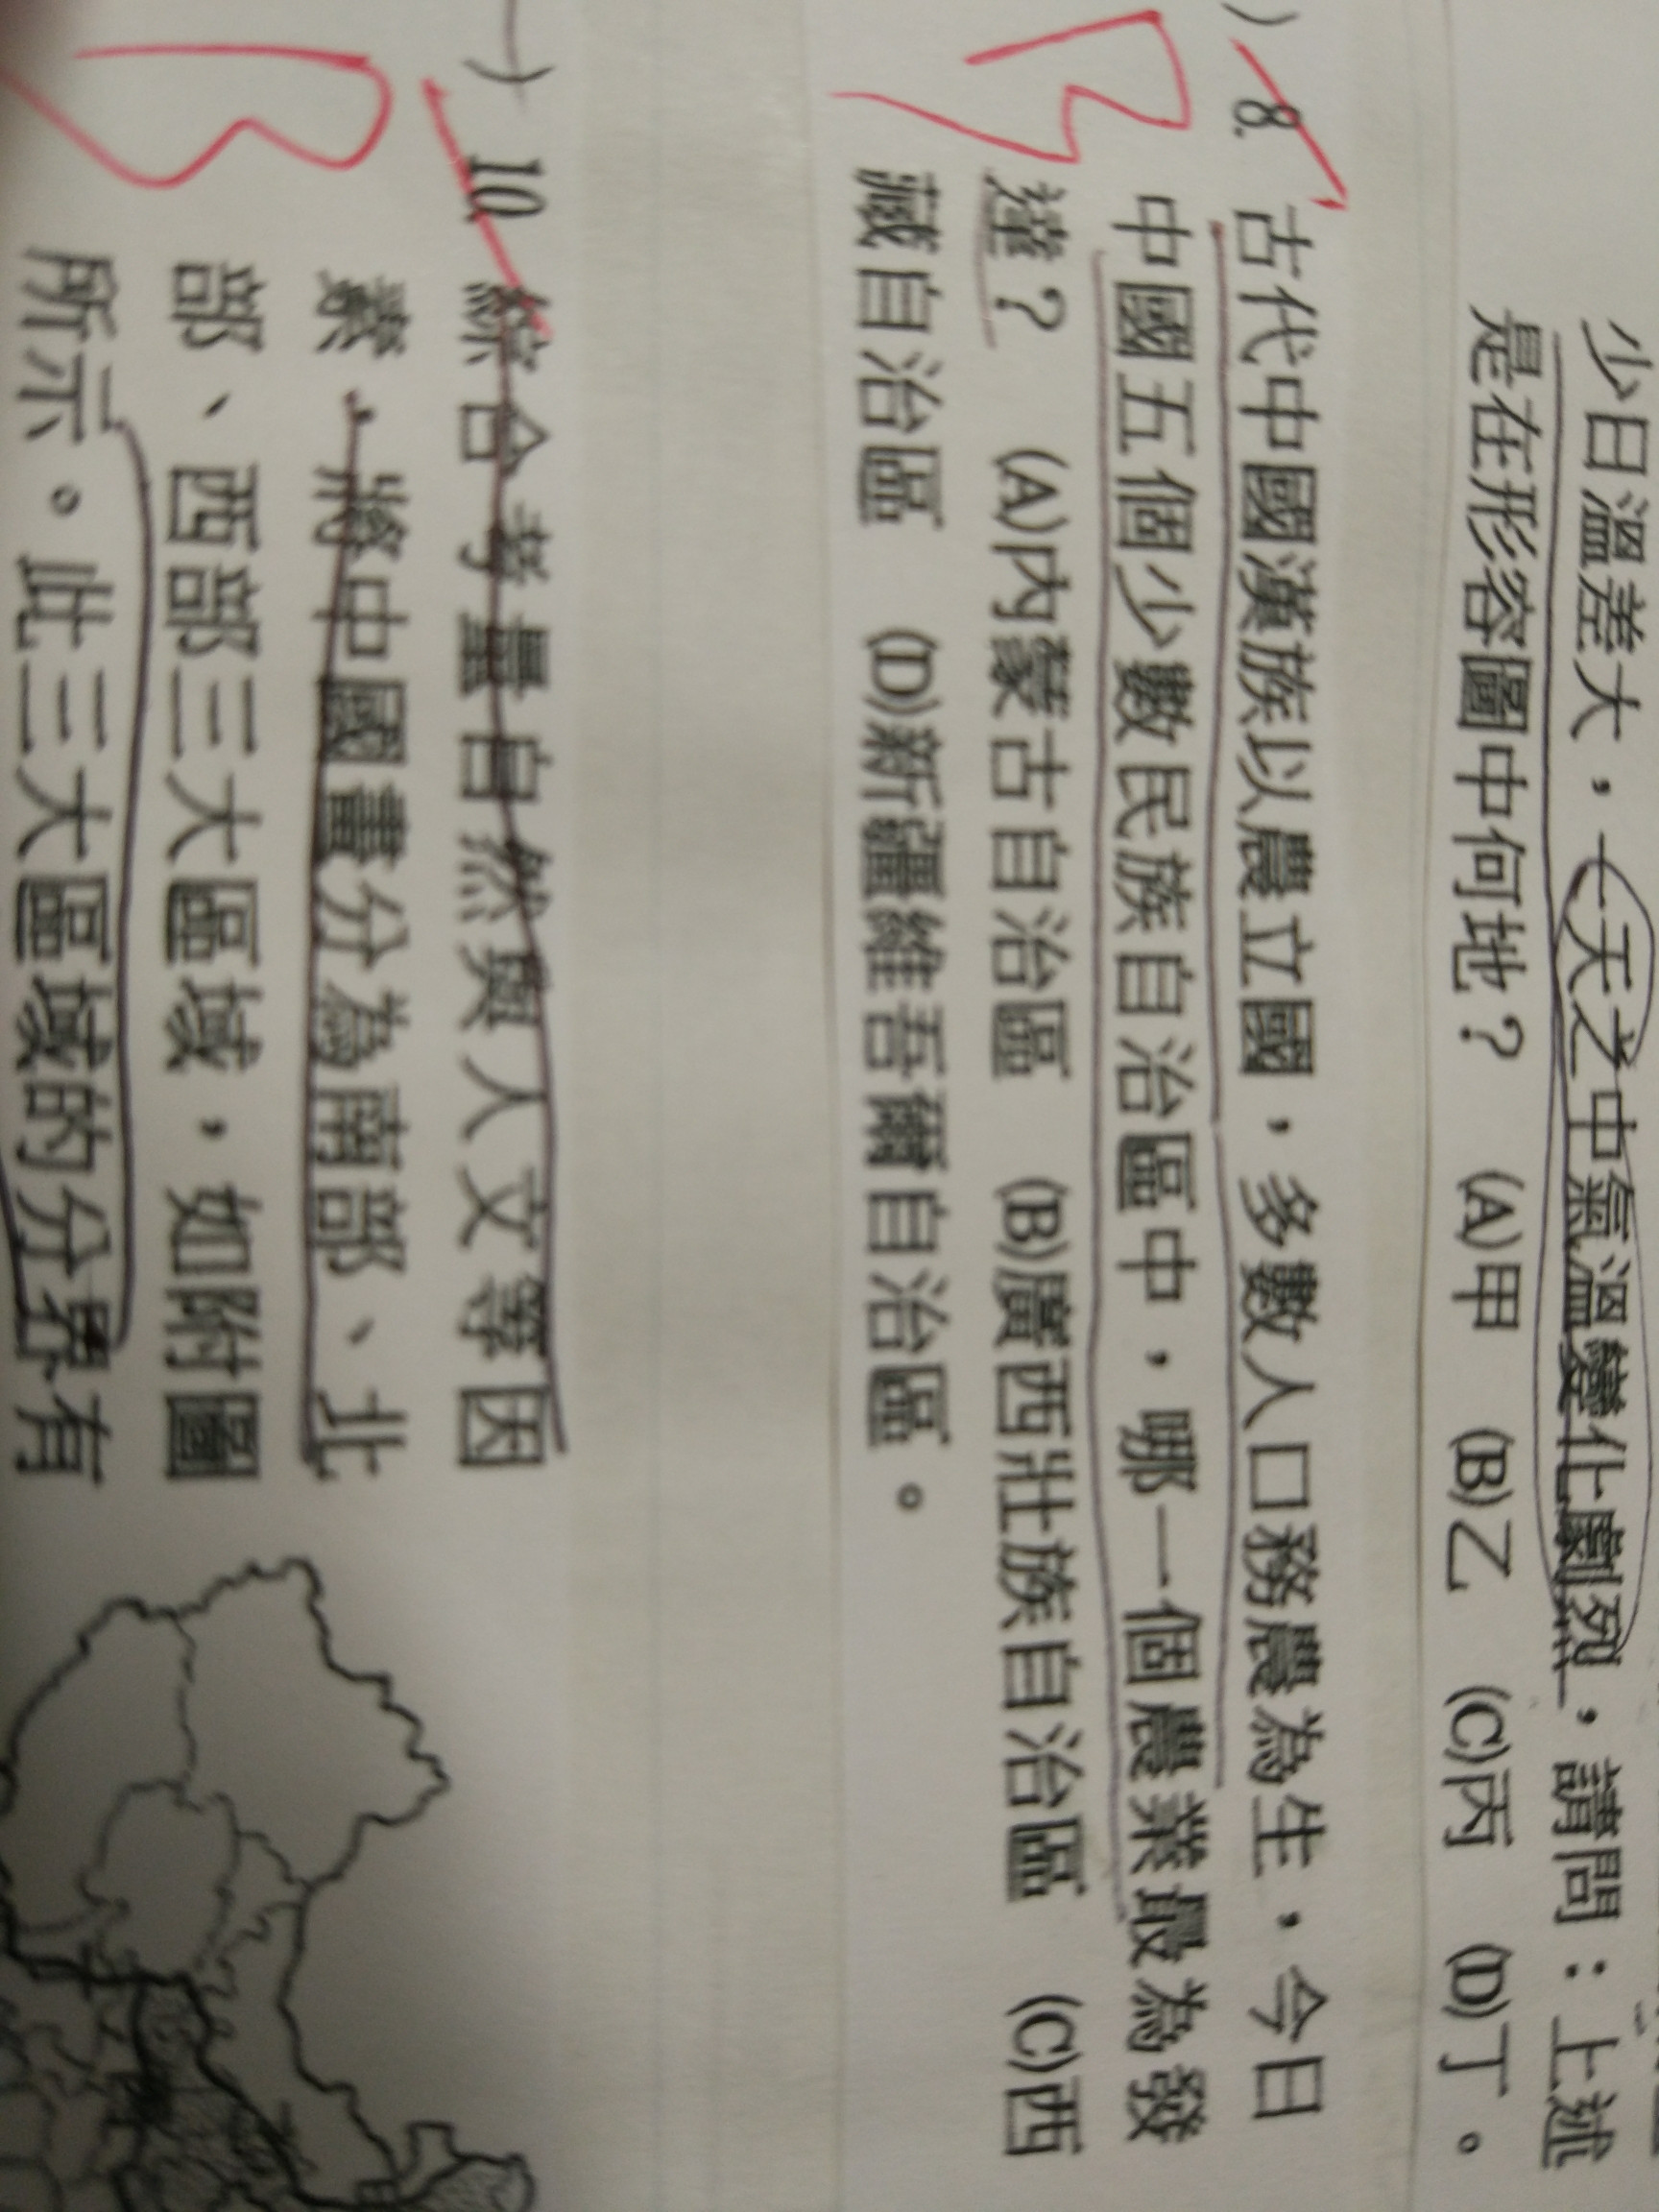 少日溫差大，一天之中氣溫變化劇烈，請問：上述
是在形容圖中何地？ (A)甲 (B)乙 (C)丙 (D)丁。
) 8. 古代中國漢族以農立國，多數人口務農為生，今日
中國五個少數民族自治區中，哪一個農業最為發
達？ (A)內蒙古自治區 (B)廣西壯族自治區 (C)西
藏自治區 (D)新疆維吾爾自治區。
B
) 10. 綜合考量自然與人文等因
素，將中國畫分為南部、北
部、西部三大區域，如附圖
所示。此三大區域的分界有
B